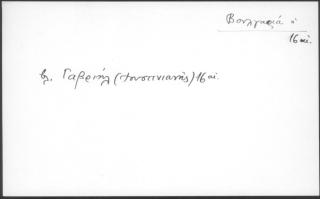 Βουλγαρία
16 αι.
βλ. Γαβριήλ (Ιουστινιανής) 16 αι.